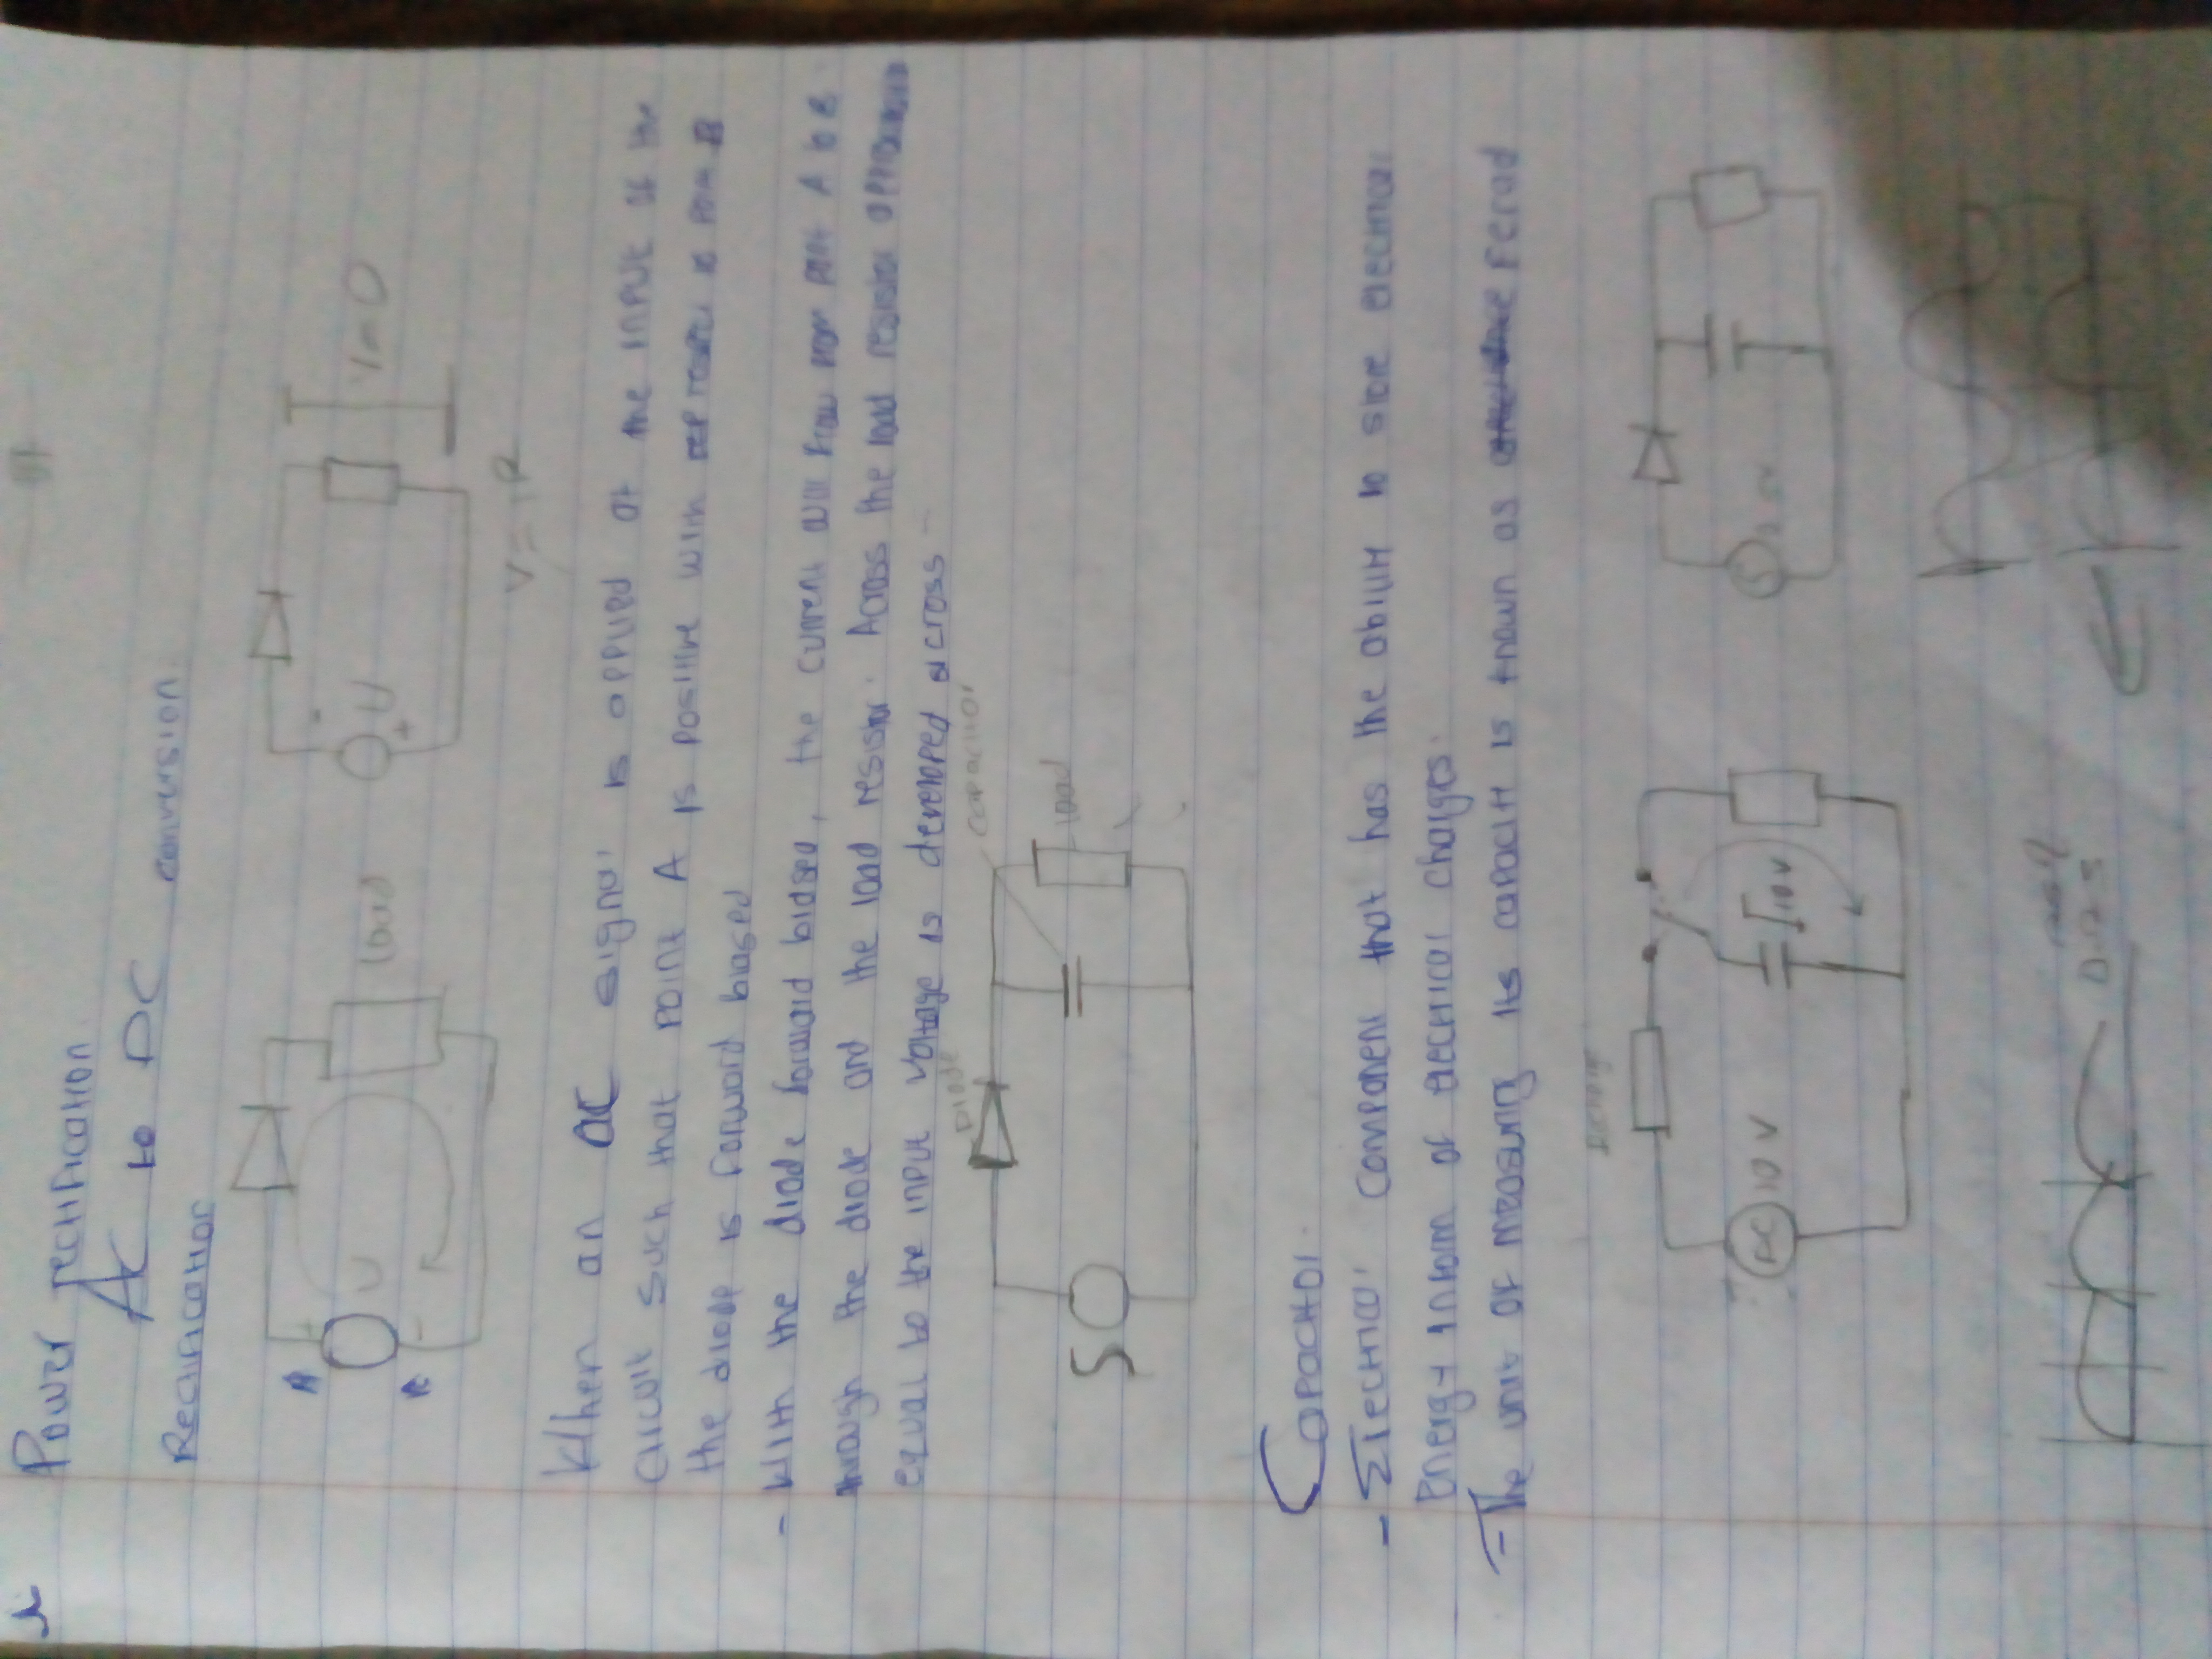 Power rectification
AC to DC conversion.
Rectification
A
+
U
load
B
-
-
U
+
V=0
V=IR
When an AC signal is applied at the input of the
circuit such that point A is positive with respect to point B
the diode is forward biased
- With the diode forward biased, the current will flow from point A to B
through the diode and the load resistor. Across the load resistor
equal to the input voltage is developed across
Diode
capacitor
S
load
Capacitor.
- Electrical component that has the ability to store electrical
energy inform of electrical charges.
- The unit of measuring its capacity is known as Ferad
DC
10 V
10 V